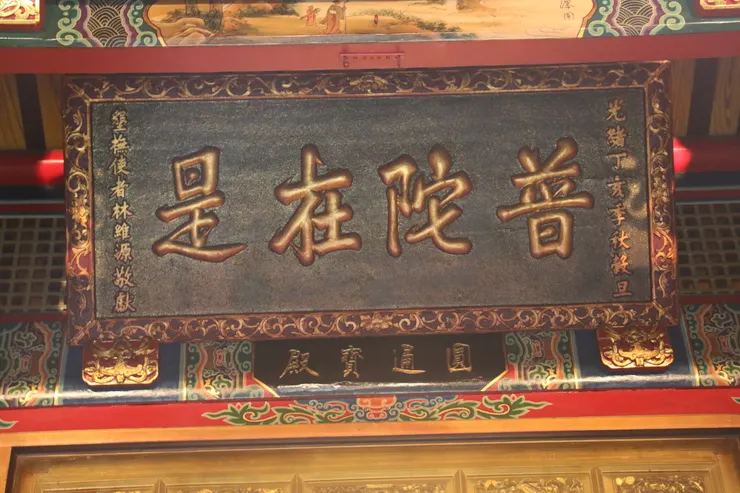 光緒丁亥季秋穀旦
普陀在是
墾撫使者林維源敬獻
圓通寶殿